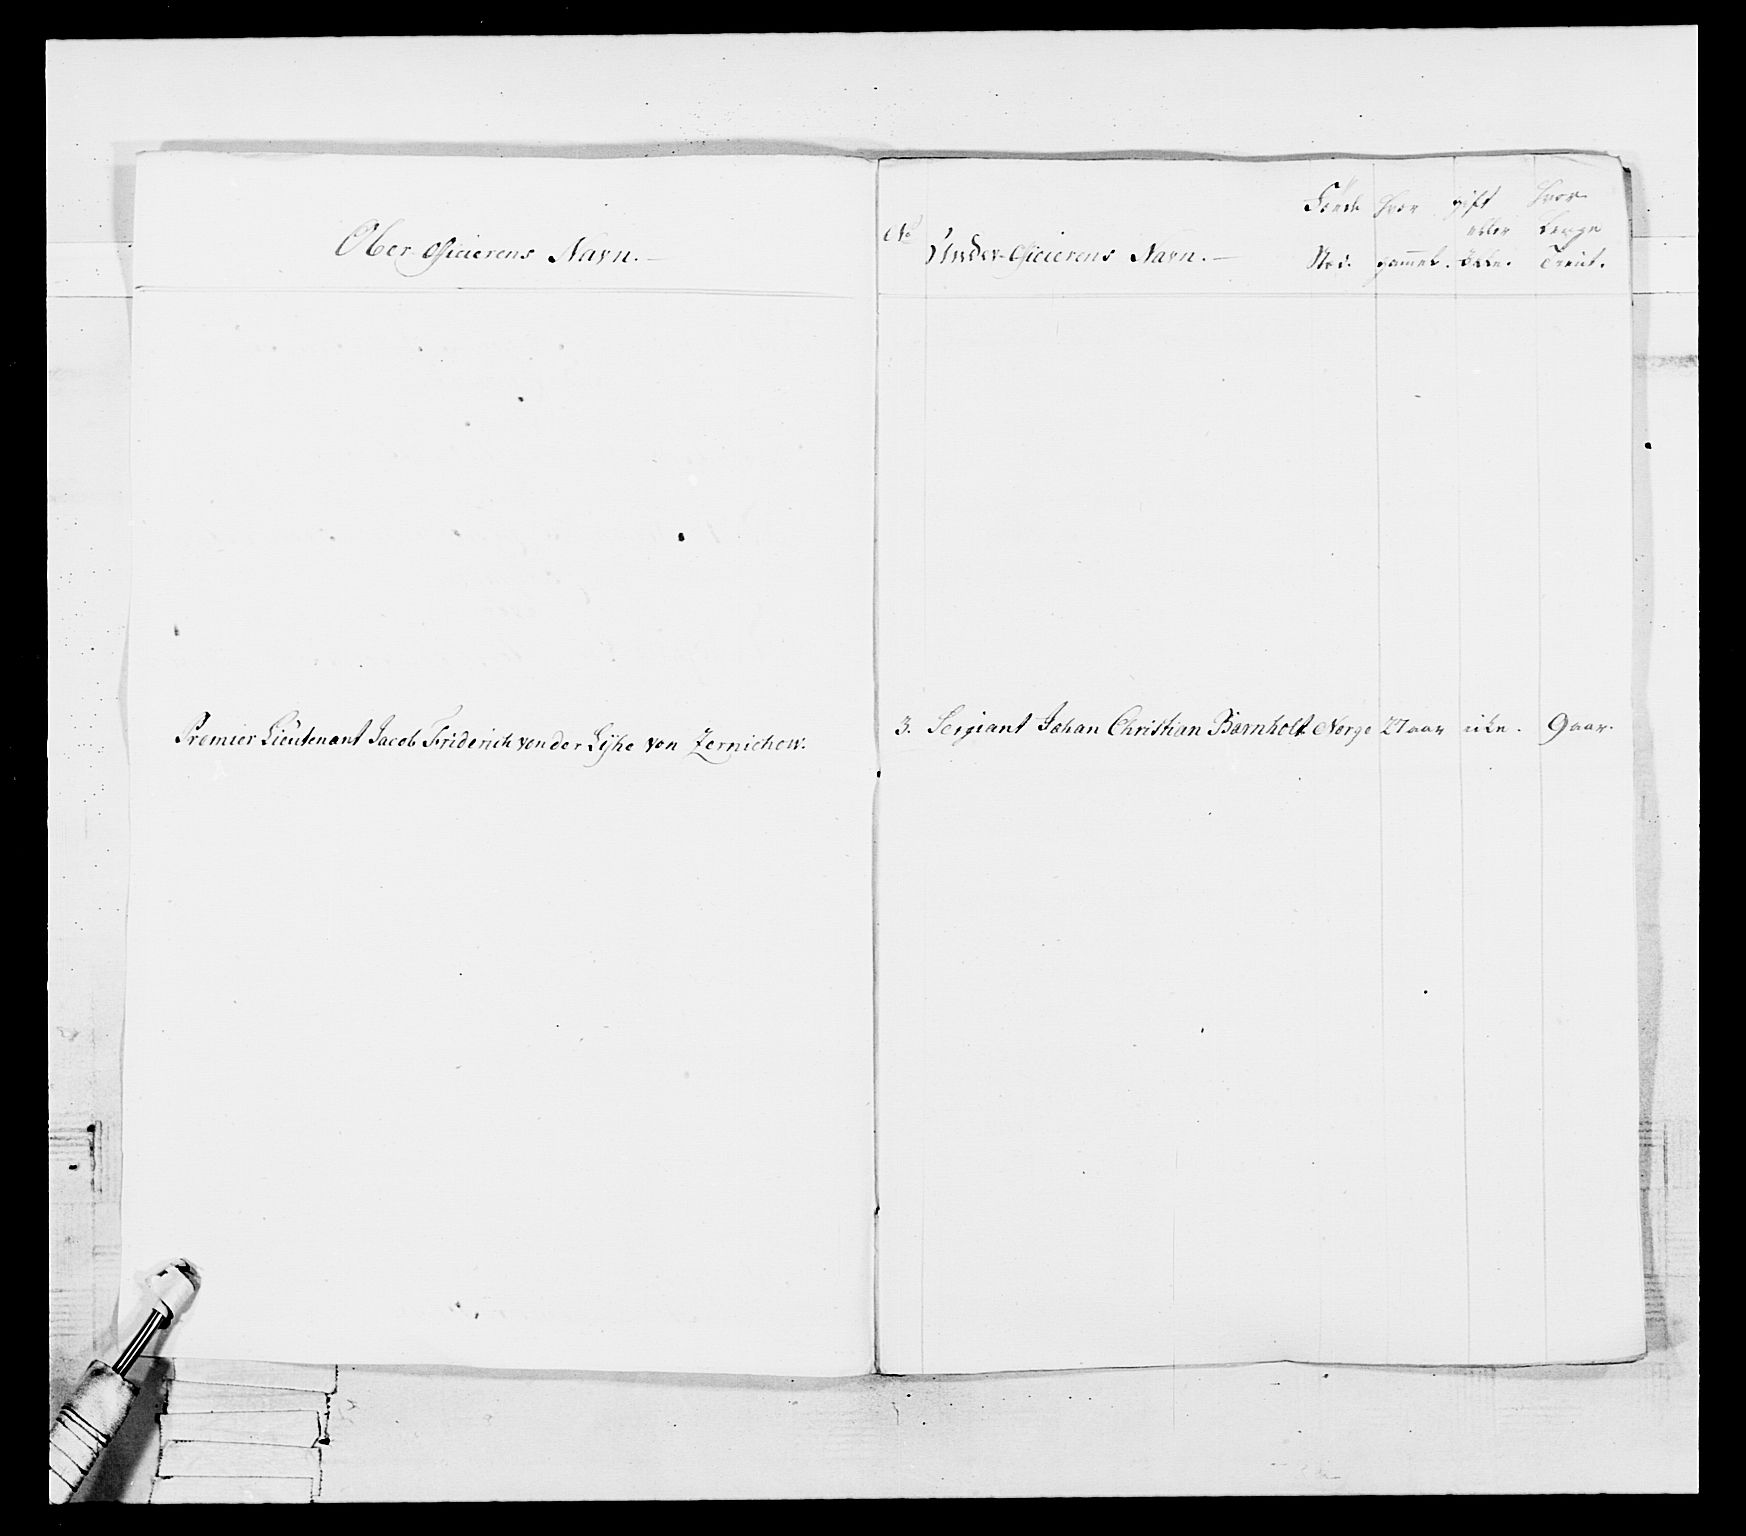 Ober-Officierens Navn.
Premier Lieutenant Jacob Friderich von der Lÿhe von Zernichow.
No Under-Officierens Navn.
Føede Hvor gift Hvor
eller Lenge
Sted. gammel. Ikke. Tient.
3. Sergiant Johan Christian Bornholt Norge 27 aar ikke. 9 aar.